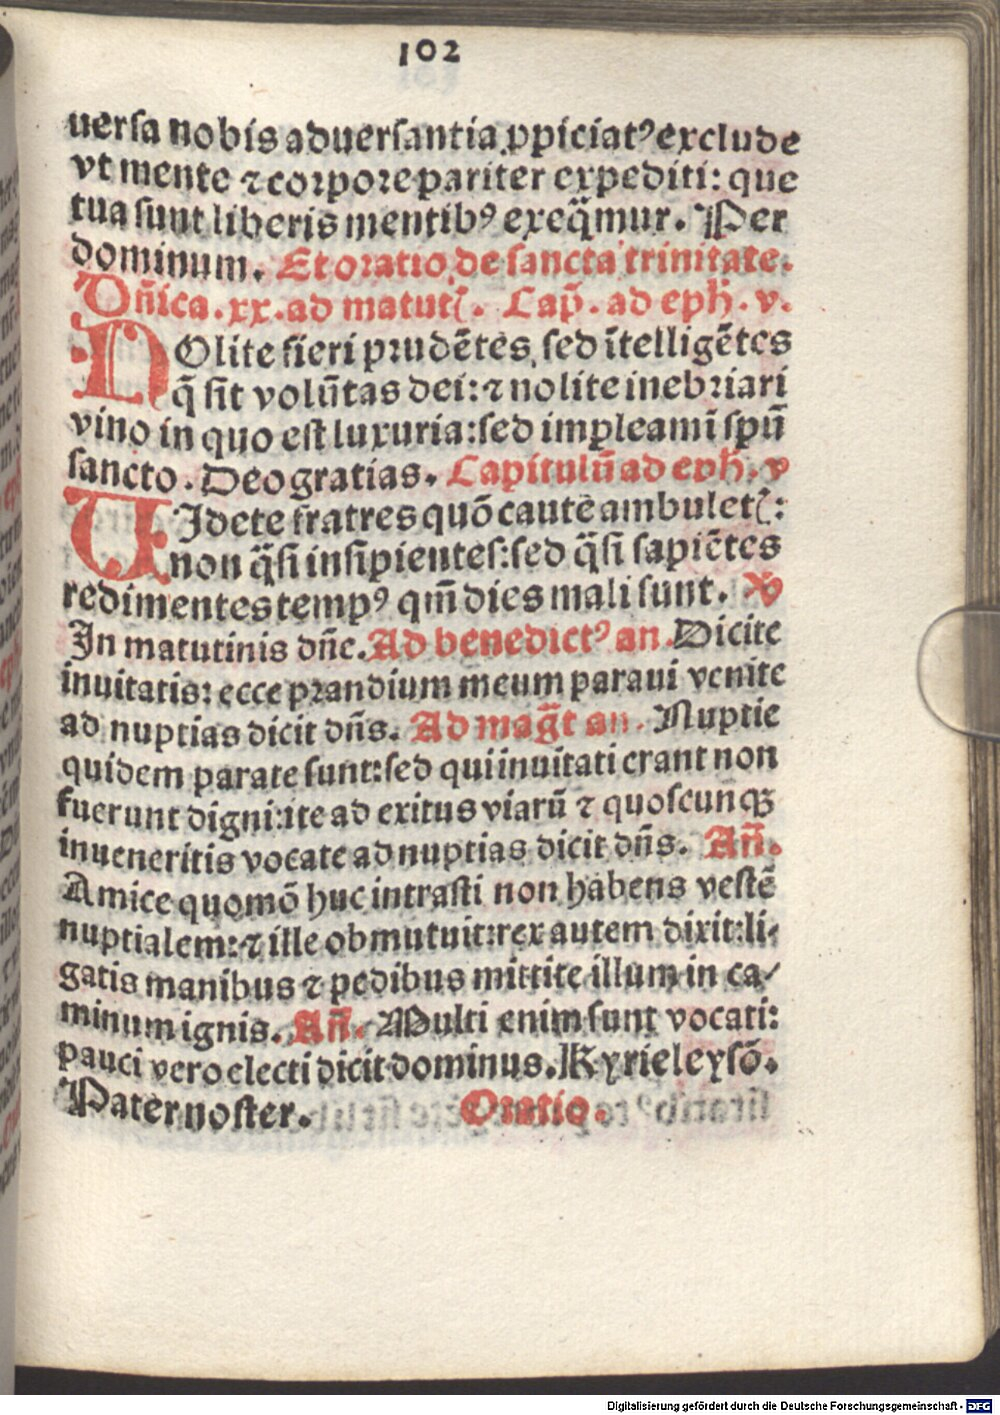 102
uersa nobis aduersantia ꝓpiciatꝰ exclude
vt mente ⁊ corpore pariter expediti: que
tua sunt liberis mentibꝰ exeq̄mur. Per
dominum. Et oratio de sancta trinitate.
Dn̄ica. xx. ad matut. Cap̄. ad eph̄. v.
NOlite fieri prudētes, sed ītelligētes
q̄ sit volūtas dei: ⁊ nolite inebriari
vino in quo est luxuria: sed impleamī spū
sancto. Deo gratias. Capitulū ad eph̄. v
VJdete fratres quō caute ambulet:
non q̄si insipientes: sed q̄si sapiētes
redimentes tempꝰ qm̄ dies mali sunt. ℣
In matutinis dn̄e. Ad benedictꝰ an. Dicite
inuitatis: ecce prandium meum paraui venite
ad nuptias dicit dn̄s. Ad mag̅t an. Nuptie
quidem parate sunt: sed qui inuitati erant non
fuerunt digni: ite ad exitus viarū ⁊ quoscunqꝫ
inueneritis vocate ad nuptias dicit dn̄s. An̄.
Amice quomō huc intrasti non habens vestē
nuptialem: ⁊ ille obmutuit: rex autem dixit: li-
gatis manibus ⁊ pedibus mittite illum in ca/
minum ignis. An̄. Multi enim sunt vocati:
pauci vero electi dicit dominus. Kyrieleysō.
Pater noster. Oratio.
Digitalisierung gefördert durch die Deutsche Forschungsgemeinschaft - DFG